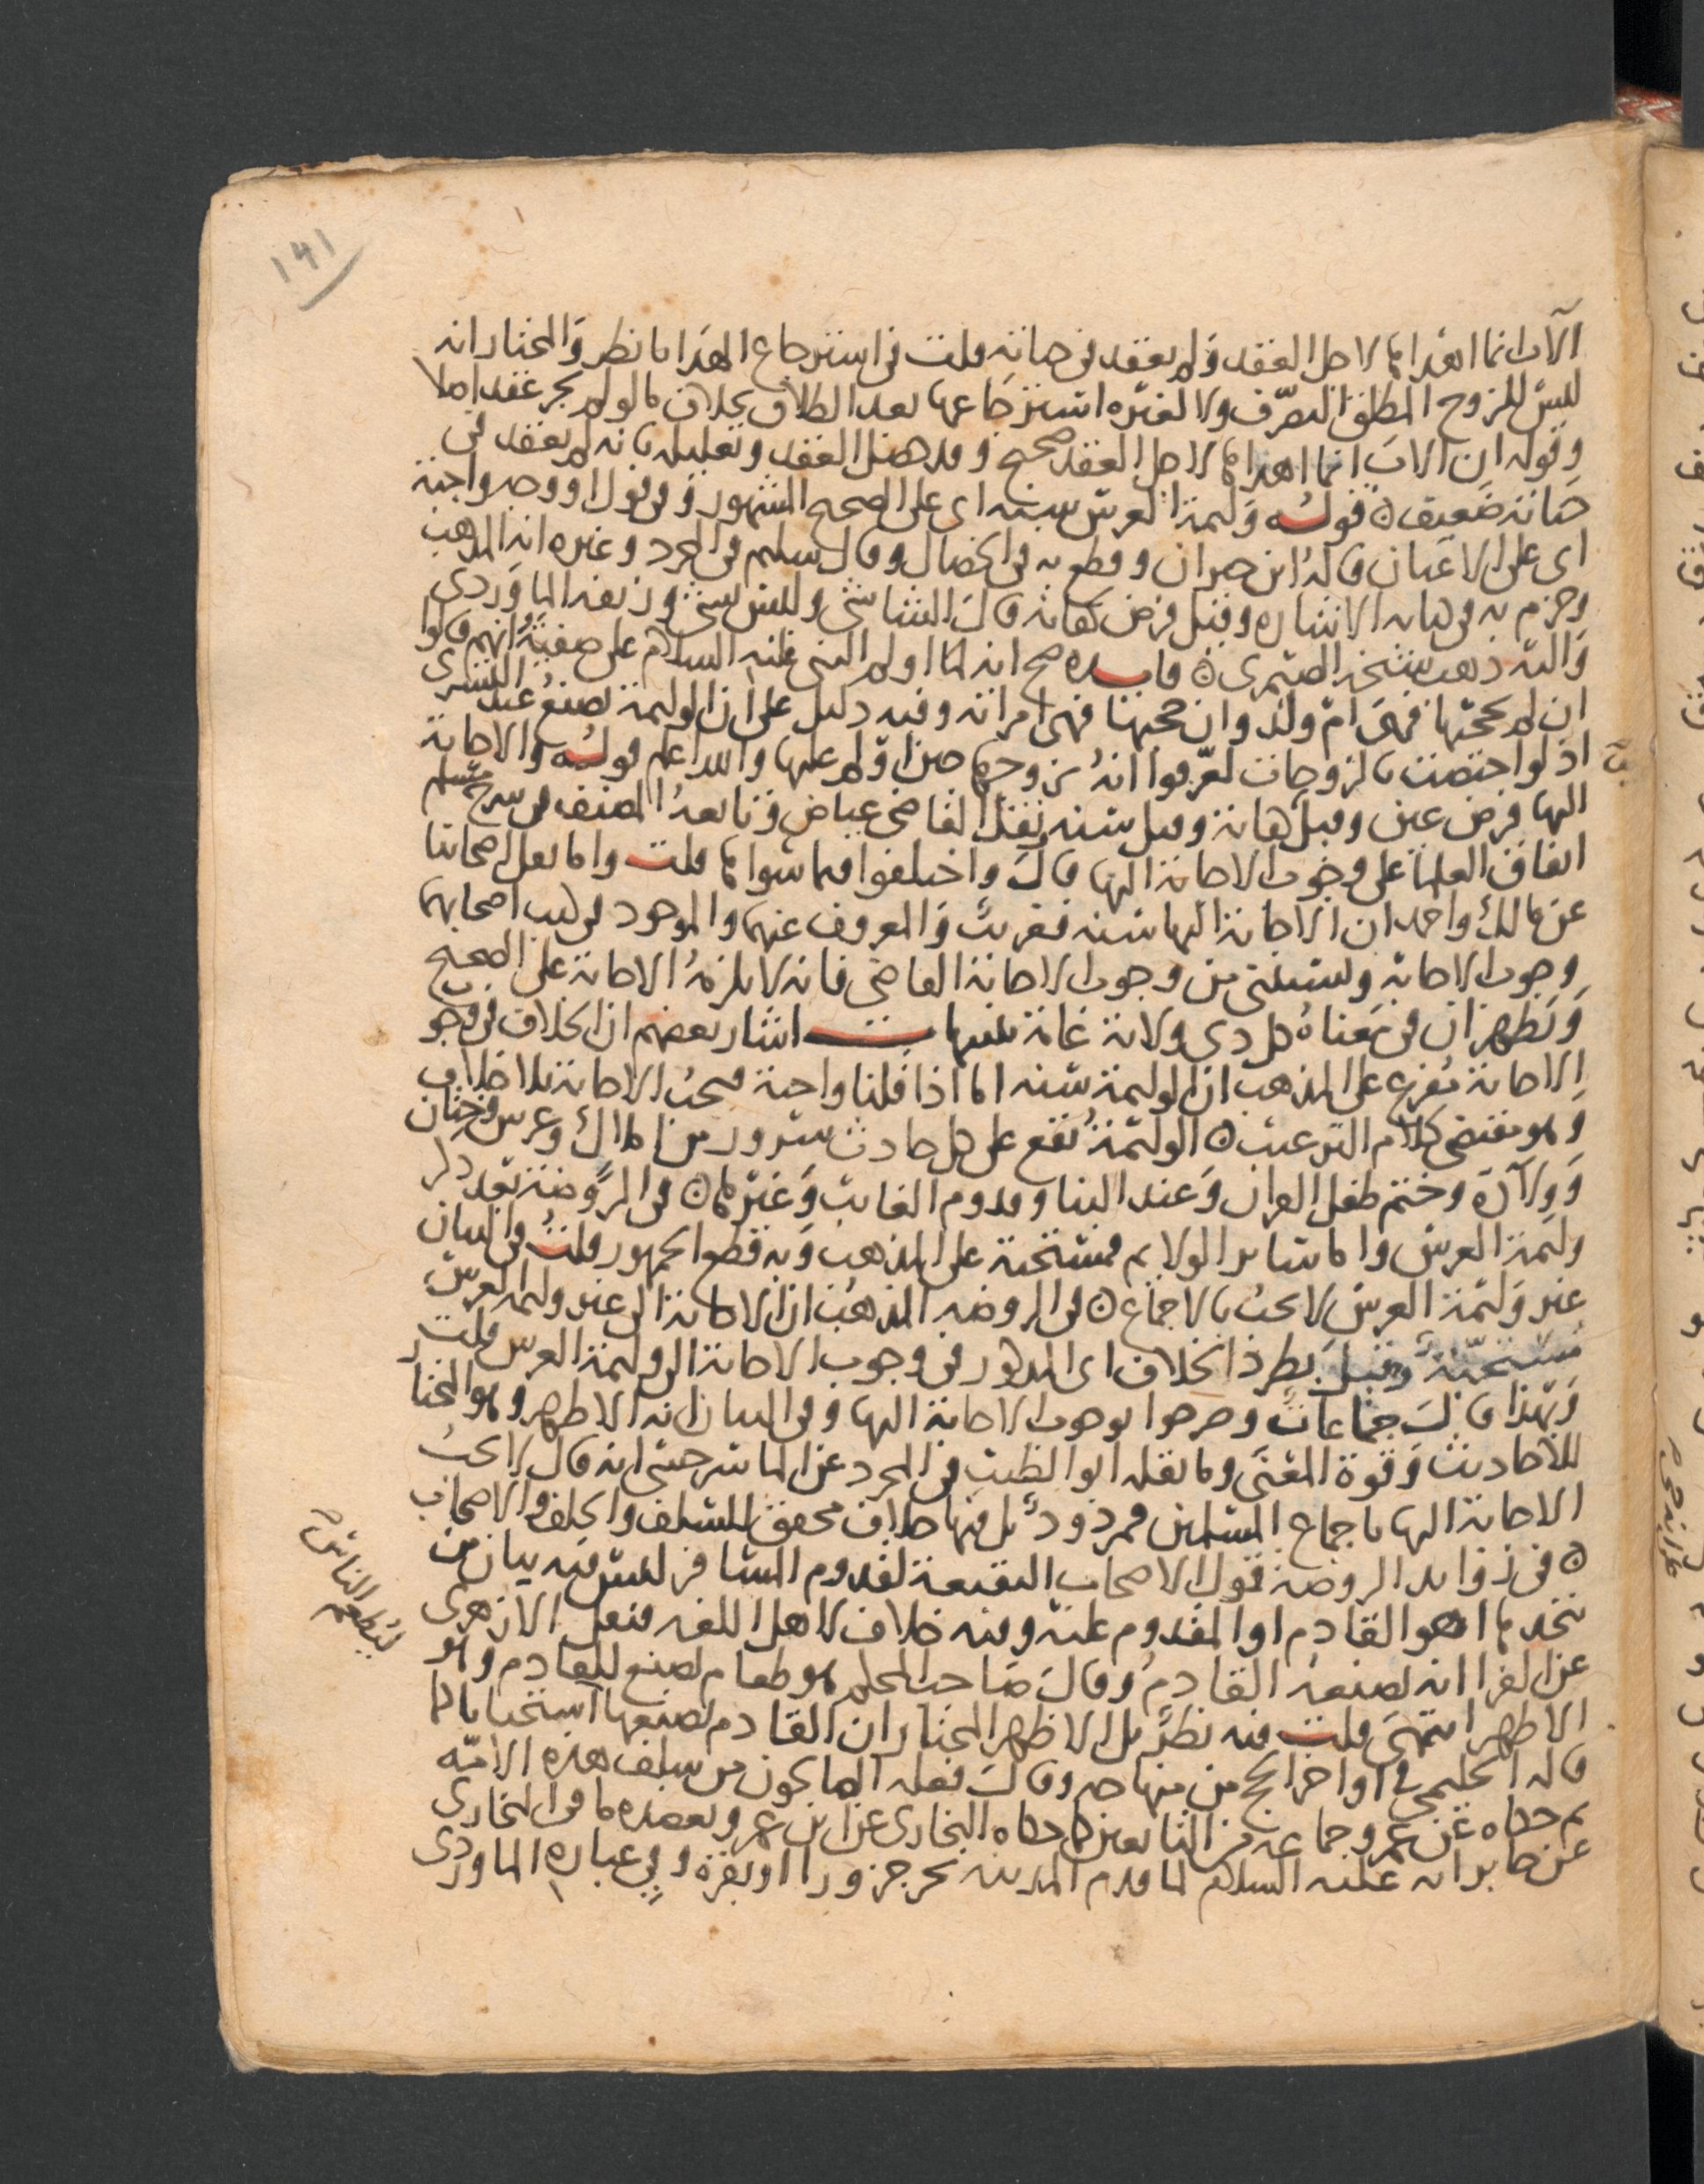 ١٤١
الاب انما اهداها لاجل العقد ولم يعقد في حياته قلت في استرجاع الهدايا نظر والمختار انه
ليس للزوج المطلق التصرف ولا لغيره استرجاعها بعد الطلاق بخلاف ما لو لم يجر عقد اصلا
وقوله ان الاب انما اهداها لاجل العقد صحيح وقد حصل العقد وتعليله بانه لم يعقد في
حياته ضعيف قوله وليمة العرس سنة اى على الصحيح المشهور وفي قول او وجه واجبة
اى على الاعيان قاله ابن خيران وقطع به في الخصال وقال سليم في المجرد وغيره انه المذهب
وجزم به في هامه الاشاره وقيل فرض كفاية قال الشاشي وليس بشئ وزيفه الماوردى
واليه ذهب شيخه الصيمرى فايده صح انه لما اولم النبي عليه السلام على صفية انهم قالوا
ان لم يحجبها فهي ام ولد وان حجبها فهي امراته وفيه دليل على ان الوليمة تصنع عند التسرى
اذ لو اختصت بالزوجات لعرفوا انه تزوجها حين اولم عليها والله اعلم قوله والاجابة
اليها فرض عين وقيل كفاية وقيل سنة نقل القاضي عياض وتابعه المصنف في شرح مسلم
اتفاق العلما على وجوب الاجابة اليها قال واختلفوا فيما سواها قلت واما نقل اصحابنا
عن مالك واحمد ان الاجابة اليها سنة فغريب والمعروف عنهما والموجود في كتب اصحابهما
وجوب الاجابة ويستثنى من وجوب الاجابة القاضي فانه لا يلزمه الاجابة على الصحيح
ويظهر ان في معناه كل ذي ولاية عامة تنبيهات اشار بعضهم ان الخلاف في وجوب
الاجابة مفرع على المذهب ان الوليمة سنة اما اذا قلنا واجبة فتجب الاجابة بلا خلاف
وهو مقتضى كلام الترغيب الوليمة تقع على كل حادث سرور من املاك وعرس وختان
وولادة وختم طفل القران وعند البنا وقدوم الغايب وغيرها في الروضة بعد ذكر
وليمة العرس واما ساير الولايم فمستحبة على المذهب وبه قطع الجمهور قلت في البيان
غير وليمة العرس لا تجب بالاجماع في الروضه المذهب ان الاجابة الى غير وليمة العرس
مستحبة وقيل بطرد الخلاف اى المذكور في وجوب الاجابة الى وليمة العرس قلت
وبهذا قال جماعات وصرحوا بوجوب الاجابة اليها وفي البيان انه الاظهر وهو المختار
للاحاديث وقوة المعنى وما نقله ابو الطيب في المجرد عن الماسرجسي انه قال لا تجب
الاجابة اليها باجماع المسلمين فمردود بل فيها خلاف محقق للسلف والخلف والاصحاب
في زوايد الروضة قول الاصحاب النقيعة لقدوم المسافر ليس فيه بيان من
يتخذها اهو القادم او المقدوم عليه وفيه خلاف لاهل اللغه فنقل الازهرى
عن الفرا انه يصنعه القادم وقال صاحب المحكم هو طعام يصنع للقادم وهو
الاظهر انتهى قلت فيه نظر بل الاظهر المختار ان القادم يصنعها استحبابا كما
قاله الحليمي في اواخر الحج من منهاجه وقال فعله الصالحون من سلف هذه الامة
ثم حكاه عن عمر وجماعه من التابعين كما حكاه البخارى عن ابن عمر ويعضده ما في البخارى
عن جابر انه عليه السلام لما قدم المدينه نحر جزورا او بقرة وفي عبارة الماوردى
ليطعم الناس